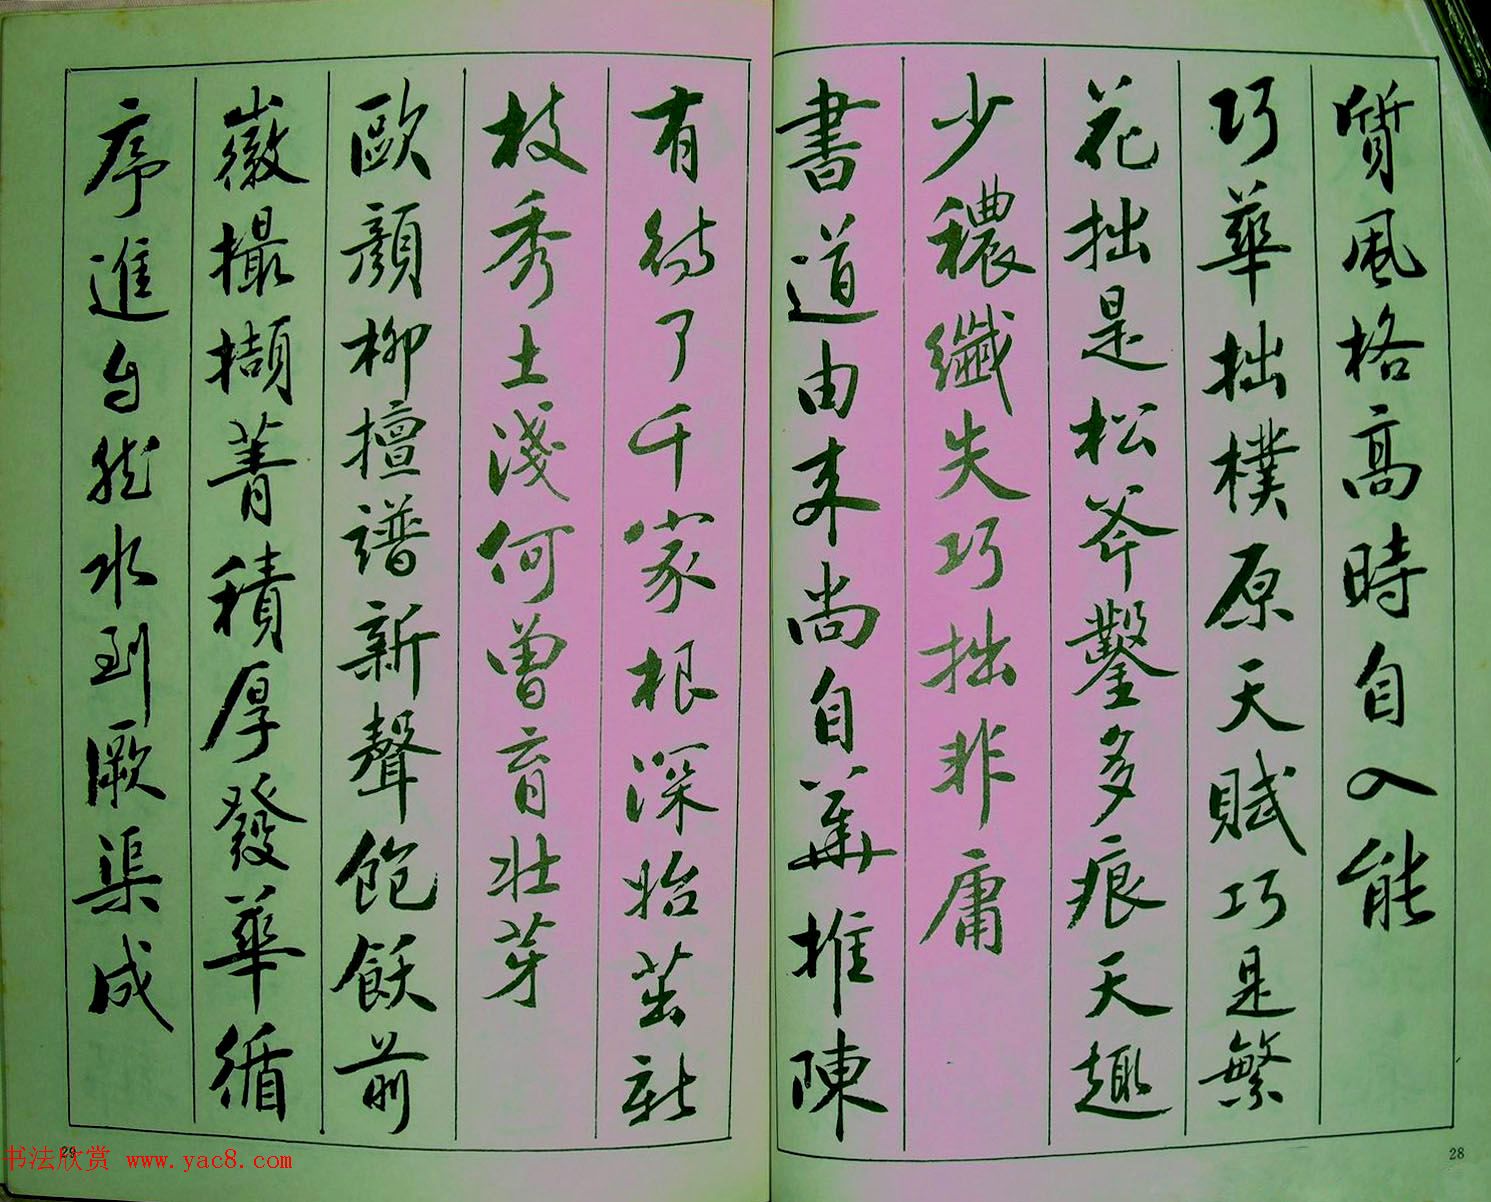 質風格高時自入能
巧華拙樸原天賦巧是繁
花拙是松斧鑿多痕天趣
少穠纖失巧拙非庸
書道由来尚自華推陳
有待了千家根深始茁新
枝秀土淺何曾育壯芽
歐顏柳擅譜新聲飽飫前
徽撮擷菁積厚發華循
序進自然水到厥渠成
28
29
书法欣赏 www.yac8.com